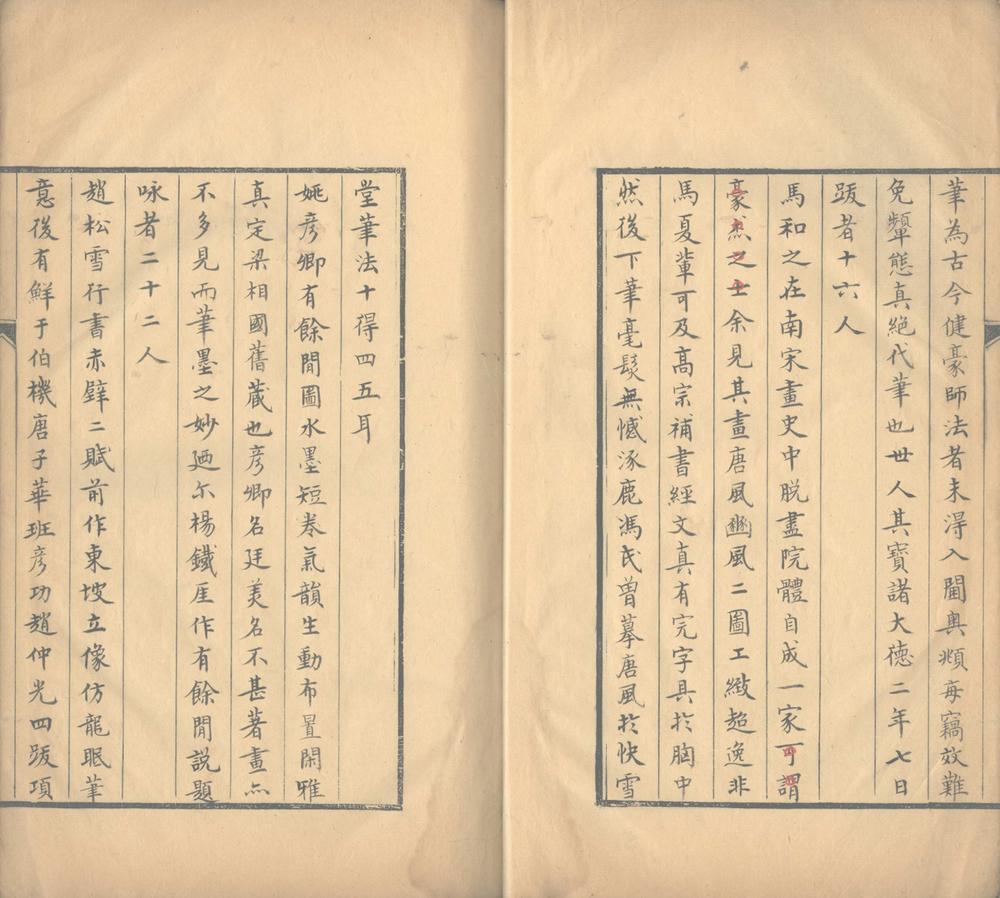 筆為古今健豪師法者未淂入閫奥頫每竊效難
免顰態真絶代筆也世人其寳諸大徳二年七日
跋者十六人
馬和之在南宋畫史中脱盡院體自成一家可謂
豪杰之士余見其畫唐風豳風二圖工緻超逸非
馬夏輩可及髙宗補書經文真有完字具扵胸中
然後下筆毫髮無憾涿鹿馮氏曽摹唐風扵快雪
堂筆法十得四五耳
姚彦卿有餘閒圖水墨短卷氣韻生動布置閑雅
真定梁相國舊蔵也彦卿名廷美名不甚著畫亦
不多見而筆墨之妙廼尓楊鐵厓作有餘閒説題
咏者二十二人
趙松雪行書赤壁二賦前作東坡立像仿龍眠筆
意後有鮮于伯機唐子華班彦功趙仲光四跋項